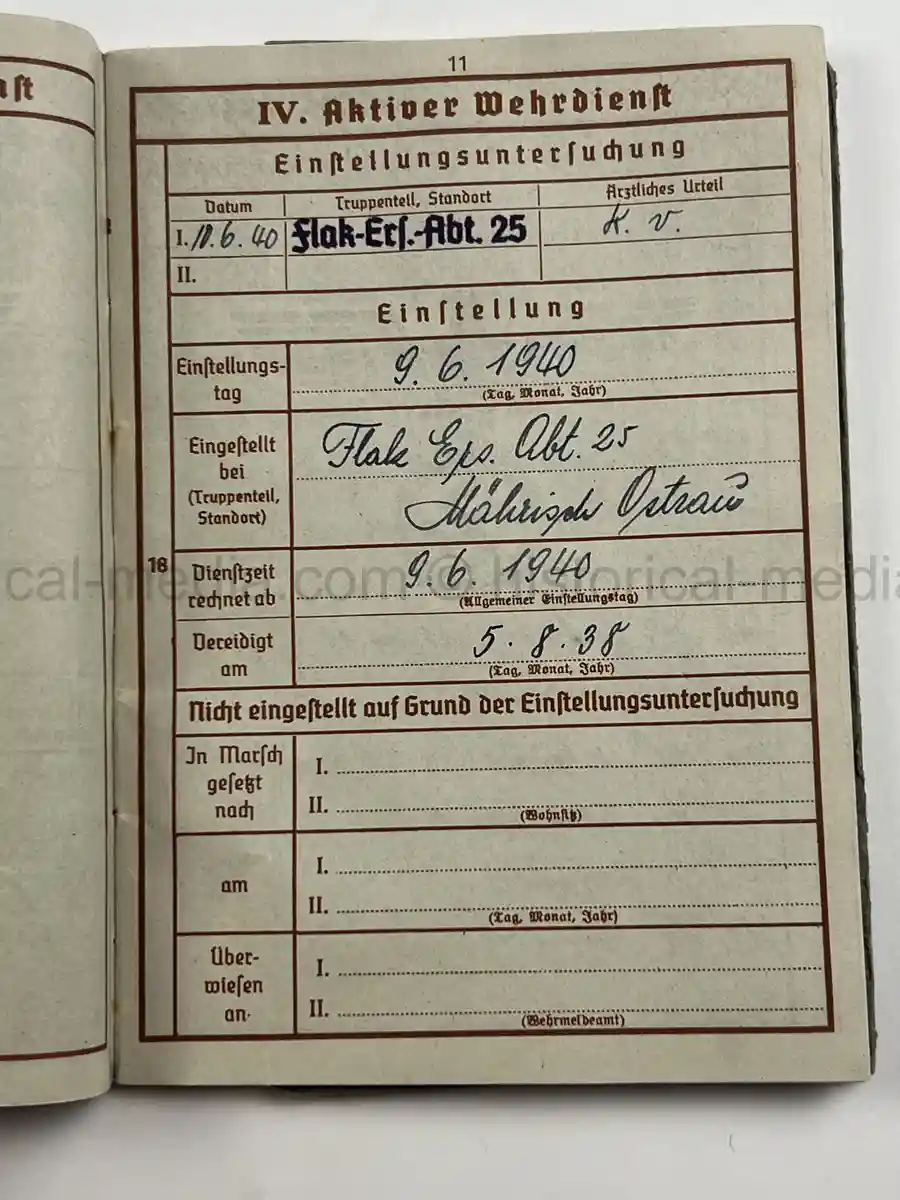 nst
11
IV. Aktiver Wehrdienst
Einstellungsuntersuchung
Datum Truppenteil, Standort Ärztliches Urteil
I. 10.6.40 Flak-Ers.-Abt. 25 K. v.
II.
Einstellung
Einstellungs-
tag
9. 6. 1940
(Tag, Monat, Jahr)
Eingestellt
bei
(Truppenteil,
Standort)
Flak Ers. Abt. 25
Mährisch Ostrau
18
Dienstzeit
rechnet ab
9. 6. 1940
(Allgemeiner Einstellungstag)
Vereidigt
am
5. 8. 38
(Tag, Monat, Jahr)
Nicht eingestellt auf Grund der Einstellungsuntersuchung
In Marsch
gesetzt
nach
I.
II.
(Wohnsitz)
am
I.
II.
(Tag, Monat, Jahr)
Über-
wiesen
an
I.
II.
(Wehrmeldeamt)
cal-media.com © historical-media